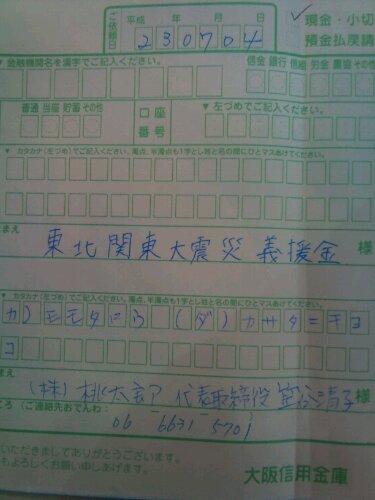 ご依頼日 平成 年 月 日
230704
現金・小切
預金払戻請
▼金融機関名を漢字でご記入ください。
信金 銀行 信組 労金 農協 その他
普通 当座 貯蓄 その他
口座番号
▼左づめでご記入ください。
▼カタカナ(左づめ)でご記入ください。濁点、半濁点も1字とし姓と名の間にひとマスあけてください。
まえ
東北関東大震災義援金 様
▼カタカナ(左づめ)でご記入ください。濁点、半濁点も1字とし姓と名の間にひとマスあけてください。
カ)モモタロウ(ダ)カサタニキヨ
コ
まえ
(株)桃太郎 代表取締役 笠谷清子 様
ころ(ご連絡先おでんわ:
06 6631 5701
いただきましてありがとうございます。
もよろしくお願い申しあげます。
大阪信用金庫